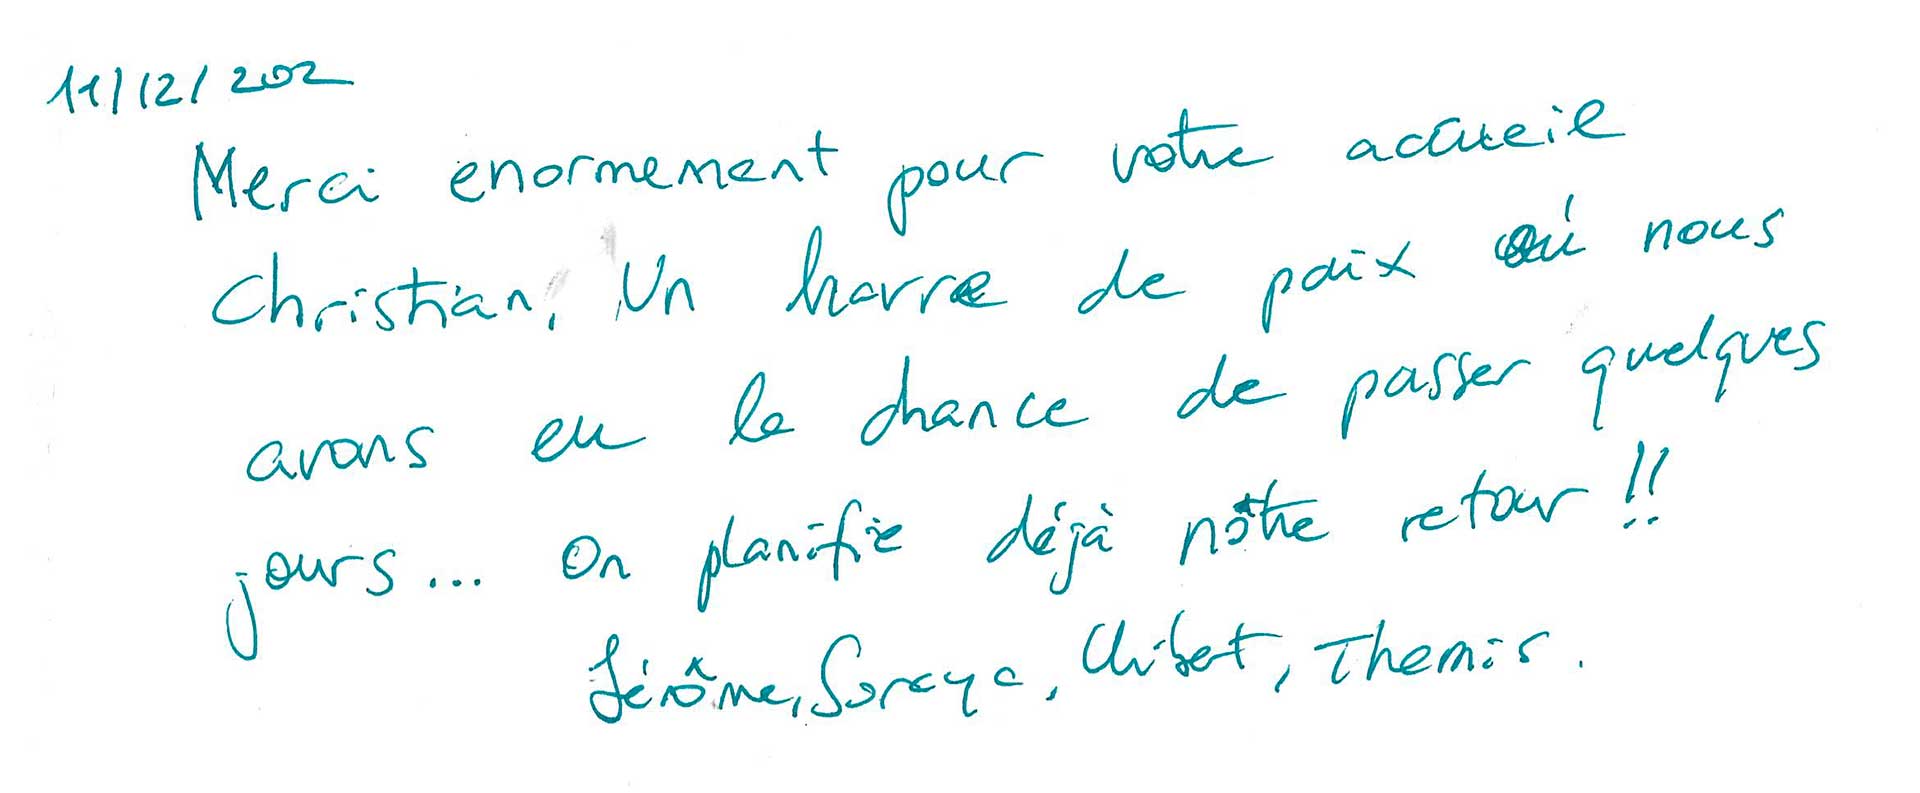 11/12/202
Merci enormement pour votre accueil
Christian, Un havre de paix où nous
avons eu la chance de passer quelques
jours... On planifie déjà nôtre retour !!
Jérôme, Soraya, Themis.